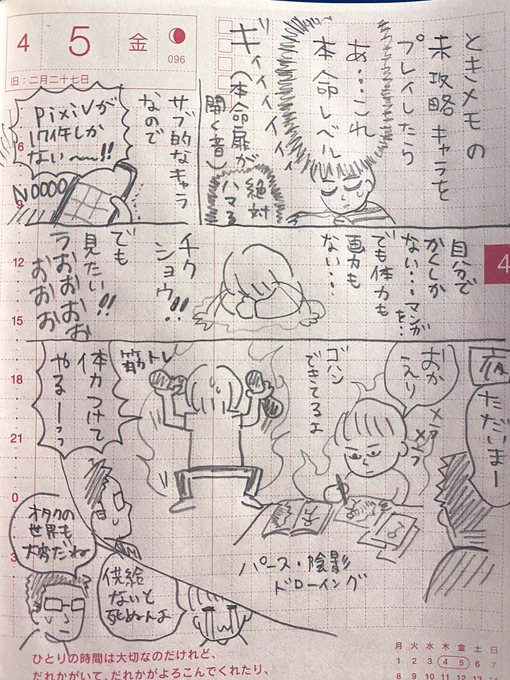 4 5 金
096
旧：二月二十七日
ときメモの
未攻略キャラを
プレイしたら
あ…これ
本命レベル
ギィイイイイイ
（本命扉が
開く音）
絶対
ハマる
サブ的なキャラ
なので
pixivが
17件しか
ない〜!!
NOOOO
自分で
かくしか
ない…マンガを…
でも体力も
画力も
ない…
チク
ショウ!!
でも
見たい!!
うおおおお
おおお
夜
ただいまー
おか
えり
メラ
メラ
ゴハン
できてるよ
パース・陰影
ドローイング
筋トレ
体力つけて
やるーっっ
オタクの
世界も
大変だね
供給
ないと
死ぬんよ
6
9
12
15
18
21
0
3
4
ひとりの時間は大切なのだけれど、
だれかがいて、だれかがよろこんでくれたり、
月 火 水 木 金 土 日
1 2 3 4 5 6 7
8 9 10 11 12 13